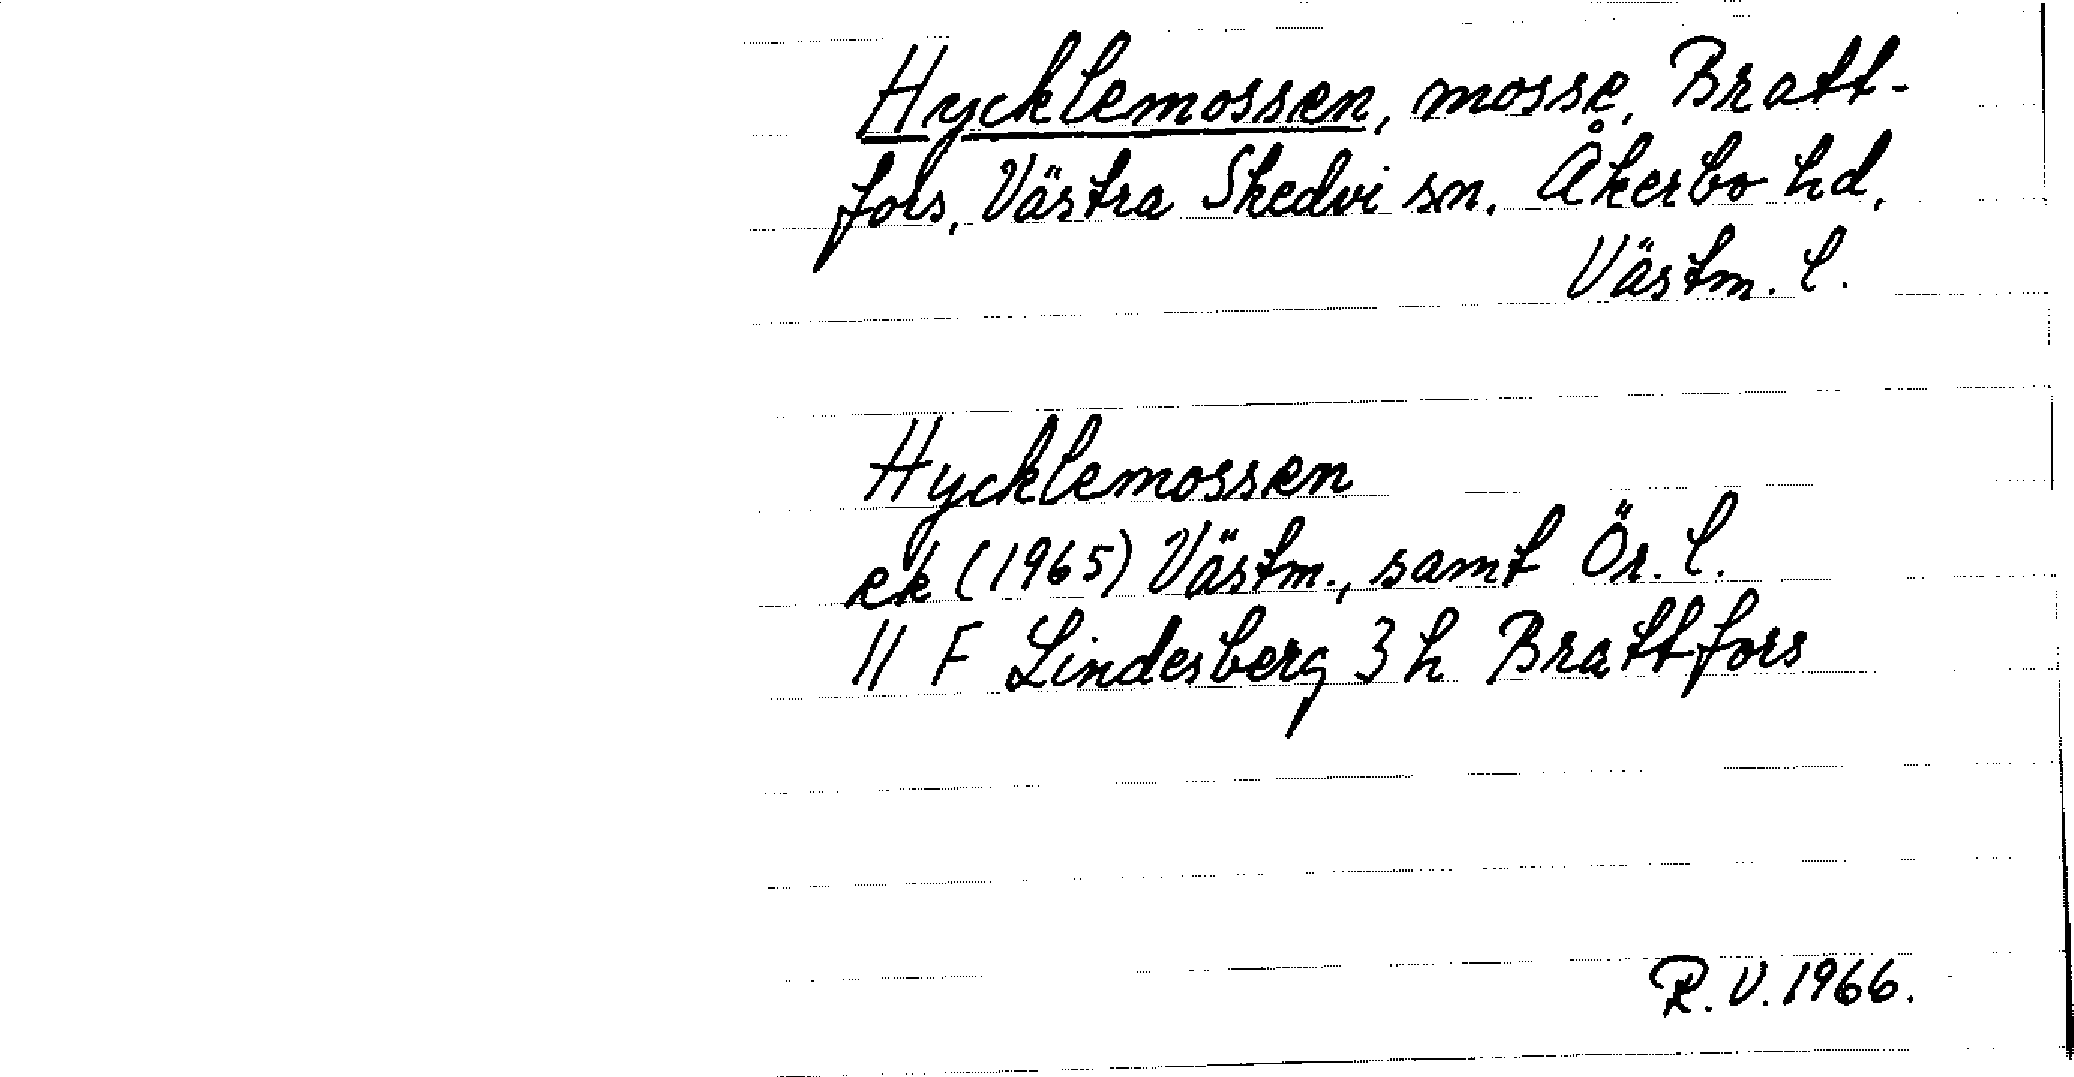 Hycklemossen, mosse, Bratt-
fors, Västra Skedvi sn. Åkerbo hd,
Västm. l.
Hycklemossen
ek (1965) Västm., samt Ör. l.
11 F Lindesberg 3 h Brattfors
R.V. 1966.